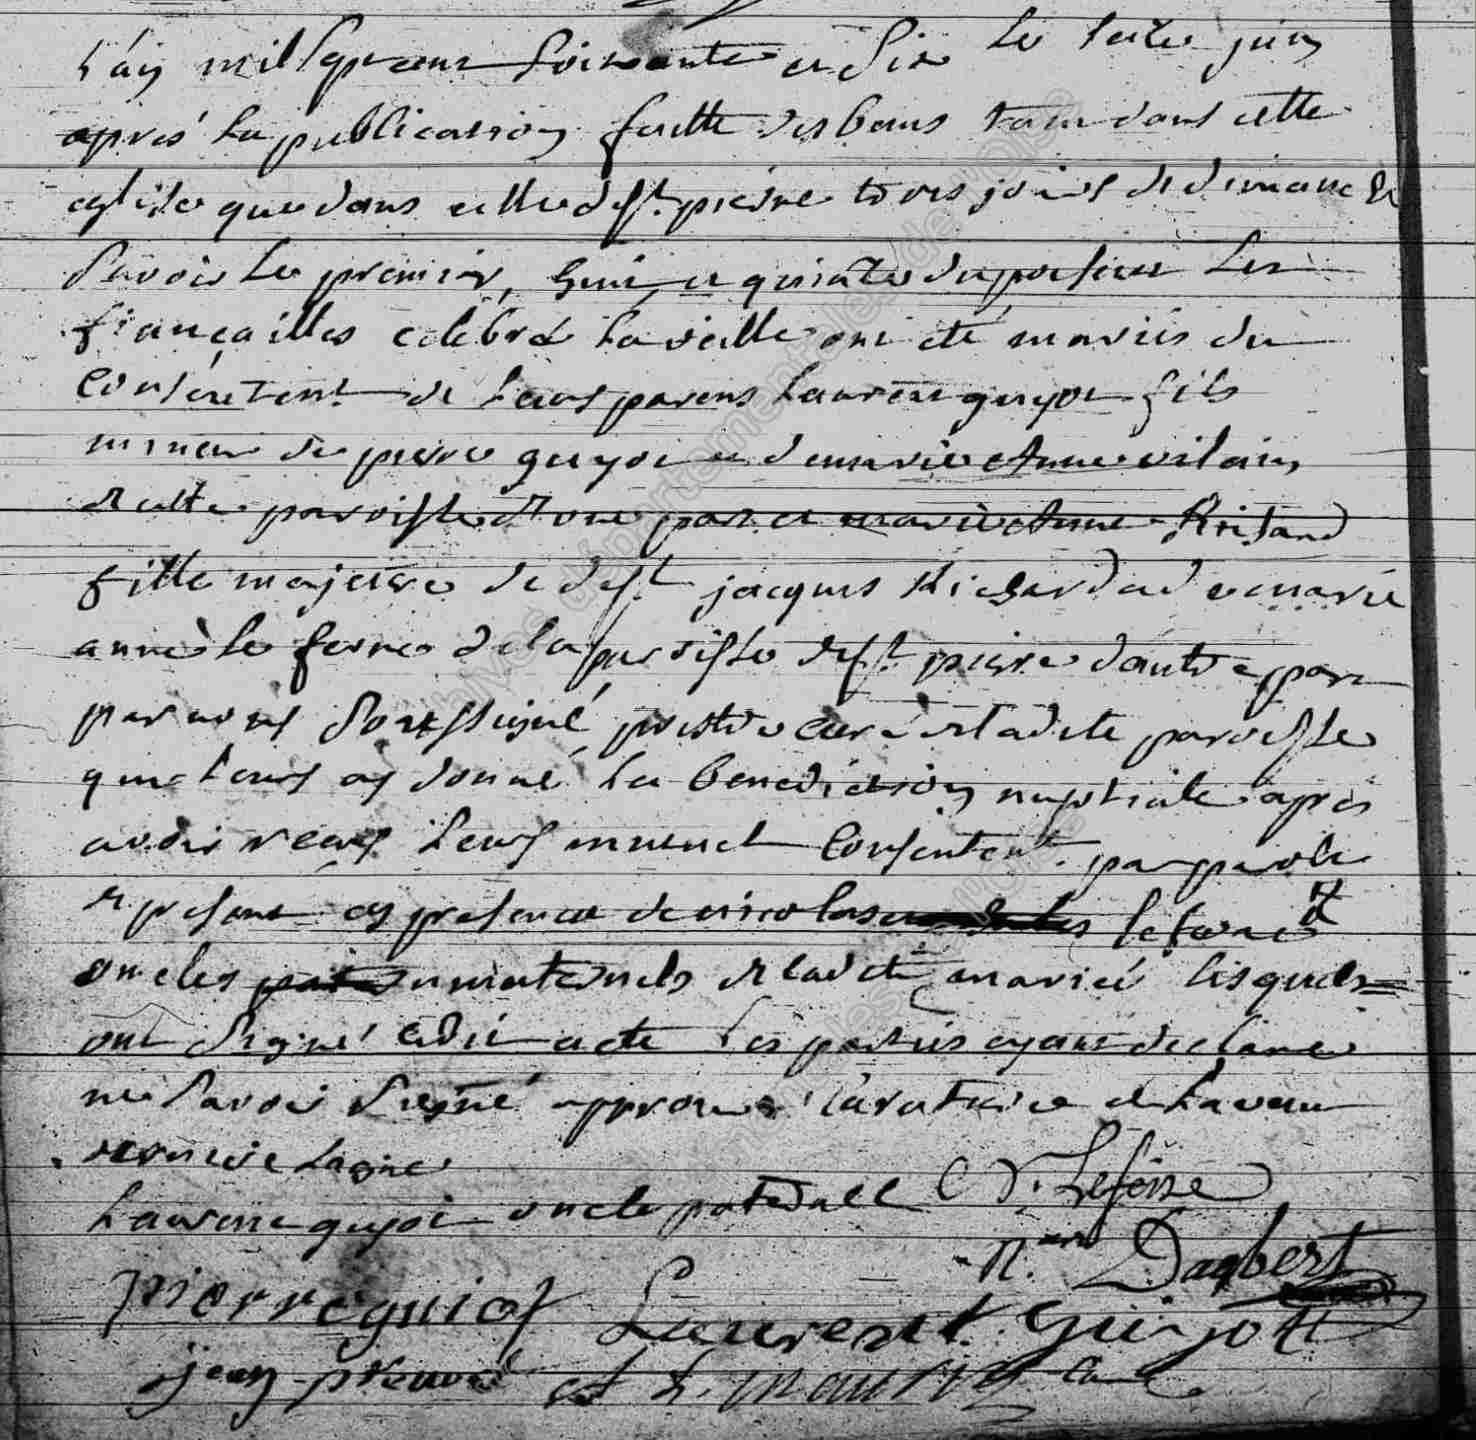 L'an mil sept cent soixante et dix le seize juin
apres la publication faitte des bans tant dans cette
eglise que dans celle de st. pierre trois jours de dimanche
savoir le premier, huit et quinze du present les
fiançailles celebré la veille ont été mariés du
consentemt de leurs parens Laurent guyot fils
mineur de pierre guyot et de marie Anne vilain
de cette paroisse d'une part et marie Anne Richard
fille majeure de deft jacques Richard et de marie
anne le fevre de la paroisse de st. pierre d'autre part
par nous soussigné prestre curé de ladite paroisse
qui leurs ay donné la benediction nuptiale apres
avoir reçus leurs mutuel consentemt. par parole
de present en presence de nicolas lefevre
oncles maternels de ladite mariée lesquels
ont signé ledit acte les parties ayant declarer
ne savoir signé approuvé la rature de
Laurent guyot oncle paternell N. Lefevre
N. Dagbert
pierre guiot Laurent Guijott
jean